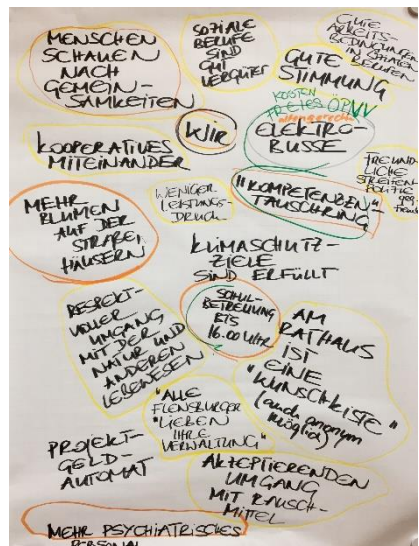 MENSCHEN
SCHAUEN
NACH
GEMEIN-
SAMKEITEN
SOZIALE
BERUFE
SIND
GUT
VERGÜTET
GUTE
ARBEITS-
BEDINGUNGEN
IN SOZIALEN
BERUFEN
GUTE
STIMMUNG
KOSTEN
FREIES ÖPNV
WIR
ELEKTRO-
BUSSE
KOOPERATIVES
MITEINANDER
FREUND-
LICHE
WENIGER
LEISTUNGS-
DRUCK
"KOMPETENZEN"-
TAUSCHRING
MEHR
BLUMEN
AUF DER
STRAßE,
HÄUSERN
KLIMASCHUTZ-
ZIELE
SIND ERFÜLLT
RESPEKT-
VOLLER
UMGANG
MIT DER
NATUR UND
ANDEREN
LEBEWESEN
SCHUL-
BETREUUNG
BIS
16.00 UHR
AM
RATHAUS
IST
EINE
"WUNSCHKISTE"
(auch anonym
möglich)
"ALLE
FLENSBURGER
LIEBEN
IHRE
VERWALTUNG"
PROJEKT-
GELD-
AUTOMAT
AKZEPTIERENDEN
UMGANG
MIT RAUSCH-
MITTEL
MEHR PSYCHIATRISCHES
PERSONAL